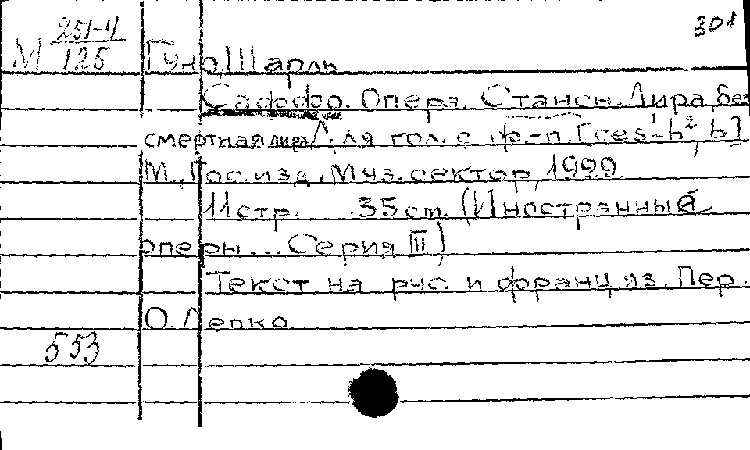 301
М 251-4/125 Гуно, Шарль
Саффо. Опера. Стансы. Лира бес
смертная лира/. Для гол. с ф.-п. [ces-h², h]
М., Гос. изд. Муз. сектор, 1929
11 стр. 35 cm. (Иностранные
оперы... Серия III)
Текст на рус. и франц. яз. Пер.
О. Лепко
553